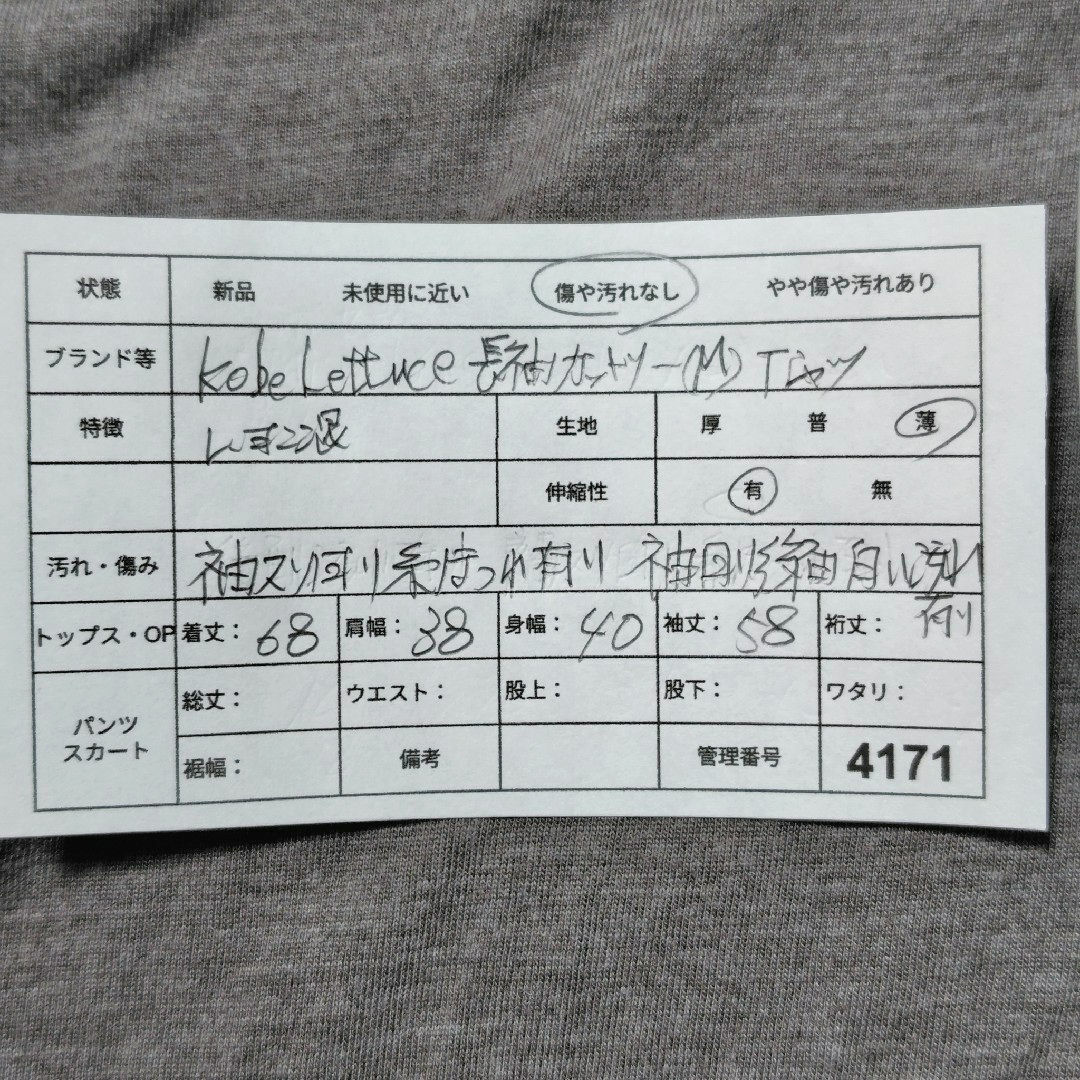 状態 新品 未使用に近い 傷や汚れなし やや傷や汚れあり
ブランド等 kobe Lettuce 長袖カットソー(M) Tシャツ
特徴 生地 厚 普 薄
伸縮性 有 無
汚れ・傷み 袖 糸ほつれ有り 袖 白い 有り
トップス・OP 着丈: 68 肩幅: 38 身幅: 40 袖丈: 58 裄丈:
パンツ スカート 総丈: ウエスト: 股上: 股下: ワタリ:
裾幅: 備考 管理番号 4171